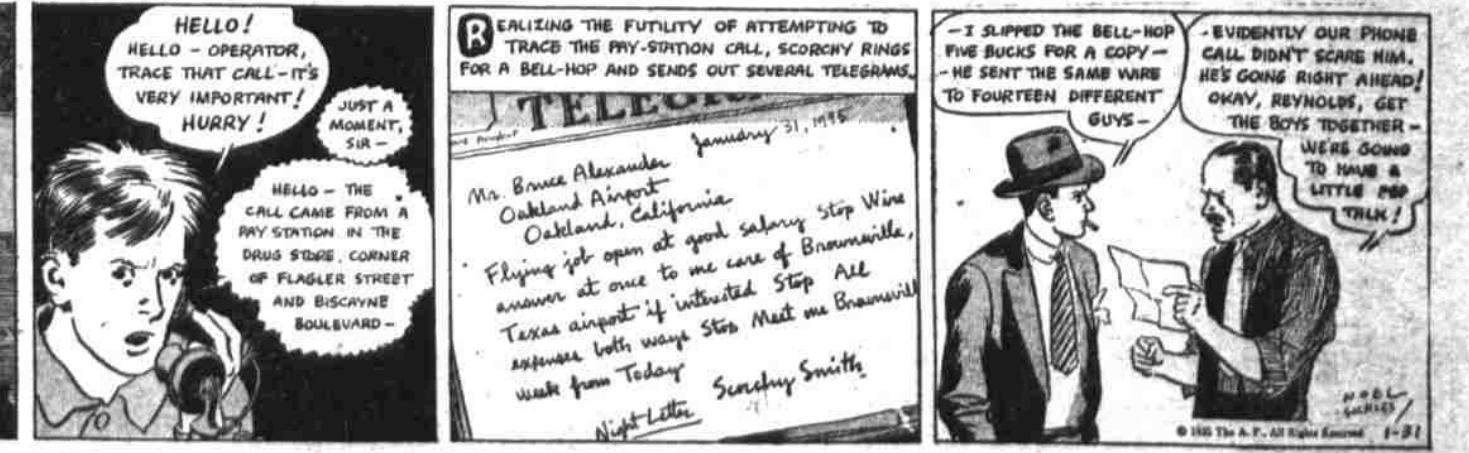 HELLO!
HELLO - OPERATOR,
TRACE THAT CALL - IT'S
VERY IMPORTANT!
HURRY!
JUST A
MOMENT,
SIR -
HELLO - THE
CALL CAME FROM A
PAY STATION IN THE
DRUG STORE, CORNER
OF FLAGLER STREET
AND BISCAYNE
BOULEVARD -
REALIZING THE FUTILITY OF ATTEMPTING TO
TRACE THE PAY-STATION CALL, SCORCHY RINGS
FOR A BELL-HOP AND SENDS OUT SEVERAL TELEGRAMS.
January 31, 1935
Mr. Bruce Alexander
Oakland Airport
Oakland, California
Flying job open at good salary Stop Wire
answer at once to me care of Brownsville,
Texas airport if interested Stop All
expenses both ways Stop Meet me Brownsvill
week from Today
Scorchy Smith
Night Letter
- I SLIPPED THE BELL-HOP
FIVE BUCKS FOR A COPY -
- HE SENT THE SAME WIRE
TO FOURTEEN DIFFERENT
GUYS -
- EVIDENTLY OUR PHONE
CALL DIDN'T SCARE HIM.
HE'S GOING RIGHT AHEAD!
OKAY, REYNOLDS, GET
THE BOYS TOGETHER -
WE'RE GOING
TO HAVE A
LITTLE PEP
TALK!
NOEL
SICKLES
© 1935 The A. P., All Rights Reserved 1-31